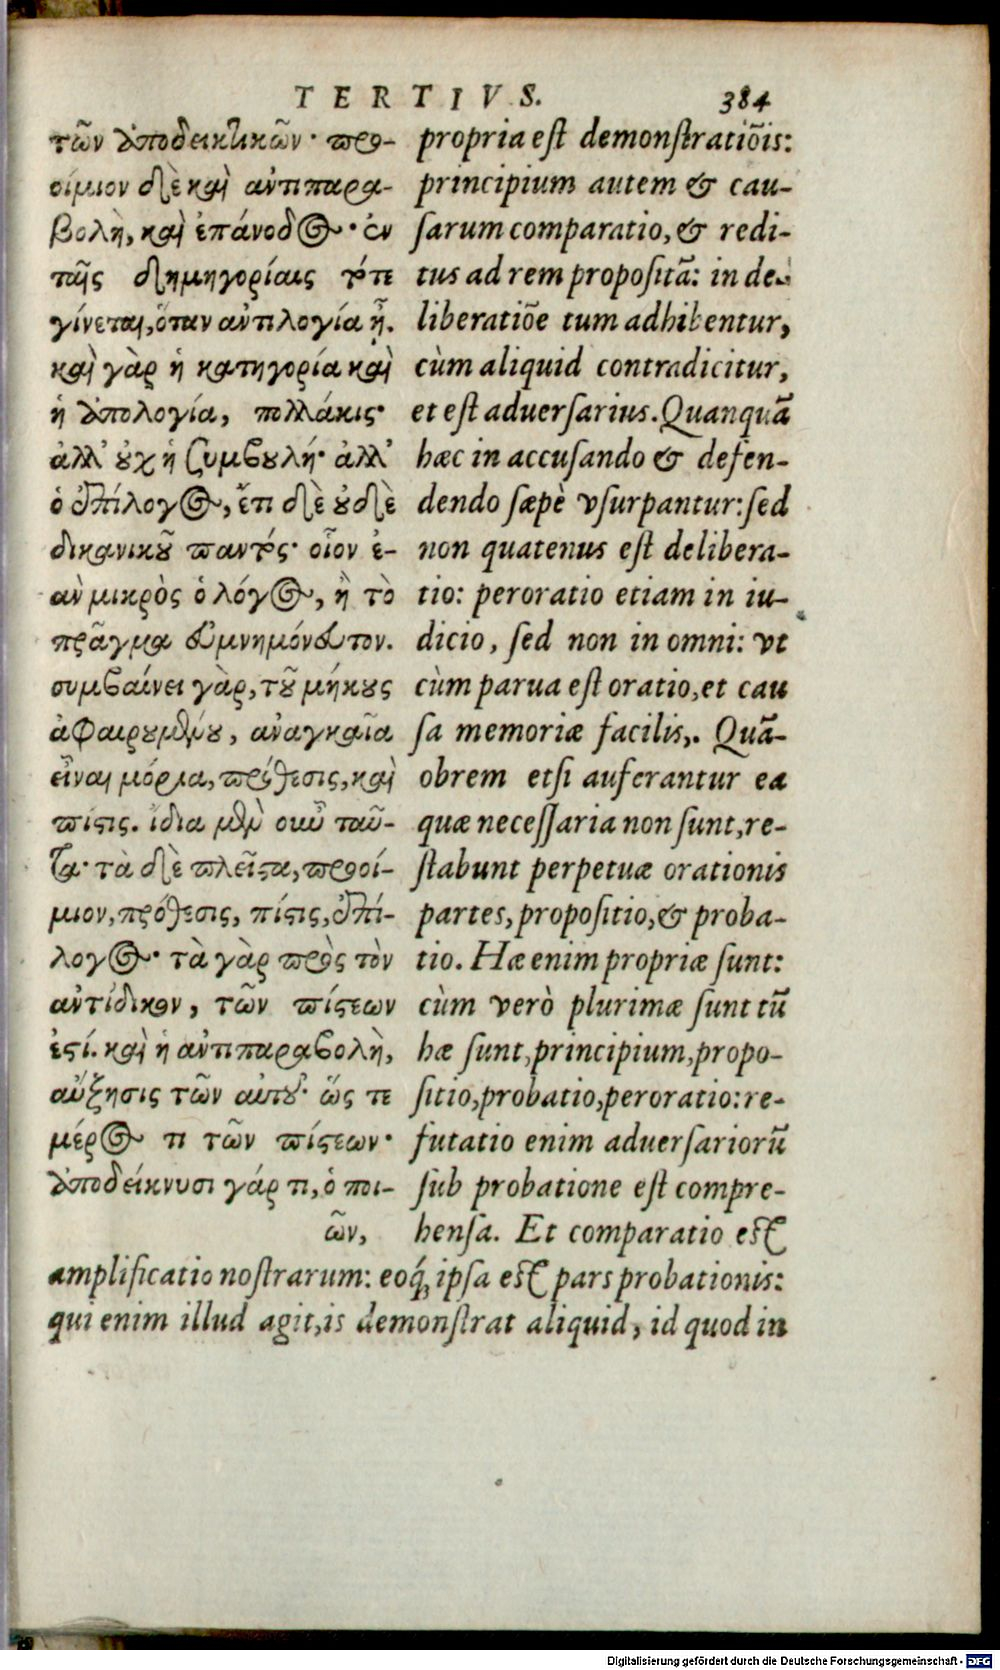 TERTIVS. 384
τῶν ἀποδεικτικῶν· προ-
οίμιον δὲ καὶ ἀντιπαρα-
βολὴ, καὶ ἐπάνοδος· ἐν
ταῖς δημηγορίαις τότε
γίνεται, ὅταν ἀντιλογία ᾖ.
καὶ γὰρ ἡ κατηγορία καὶ
ἡ ἀπολογία, πολλάκις·
ἀλλ’ οὐχ ἡ συμβουλή· ἀλλ’
ὁ ἐπίλογος, ἔτι δὲ οὐδὲ
δικανικοῦ παντός· οἷον ἐ-
ὰν μικρὸς ὁ λόγος, ἢ τὸ
πρᾶγμα εὐμνημόνευτον.
συμβαίνει γὰρ, τοῦ μήκους
ἀφαιρουμένου, ἀναγκαῖα
εἶναι μόρια, πρόθεσις, καὶ
πίστις. ἴδια μὲν οὖν ταῦ-
τα· τὰ δὲ πλεῖστα, προοί-
μιον, πρόθεσις, πίστις, ἐπί-
λογος· τὰ γὰρ πρὸς τὸν
ἀντίδικον, τῶν πίστεων
ἐστί. καὶ ἡ ἀντιπαραβολὴ,
αὔξησις τῶν αὐτοῦ· ὥς τε
μέρος τι τῶν πίστεων·
ἀποδείκνυσι γάρ τι, ὁ ποι-
ῶν,
propria est demonstratiōis:
principium autem & cau-
sarum comparatio, & redi-
tus ad rem propositā: in de-
liberatiōe tum adhibentur,
cùm aliquid contradicitur,
et est aduersarius. Quanquā
hæc in accusando & defen-
dendo sæpè vsurpantur: sed
non quatenus est delibera-
tio: peroratio etiam in iu-
dicio, sed non in omni: vt
cùm parua est oratio, et cau
sa memoriæ facilis,. Quā-
obrem etsi auferantur ea
quæ necessaria non sunt, re-
stabunt perpetuæ orationis
partes, propositio, & proba-
tio. Hæ enim propriæ sunt:
cùm verò plurimæ sunt tū
hæ sunt, principium, propo-
sitio, probatio, peroratio: re-
futatio enim aduersariorū
sub probatione est compre-
hensa. Et comparatio est
amplificatio nostrarum: eoq́; ipsa est pars probationis:
qui enim illud agit, is demonstrat aliquid, id quod in
Digitalisierung gefördert durch die Deutsche Forschungsgemeinschaft - DFG